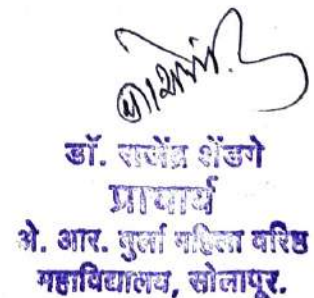 डॉ. राजेंद्र शेंडगे
प्राचार्य
ओ. आर. बुर्ला महिला वरिष्ठ
महाविद्यालय, सोलापूर.